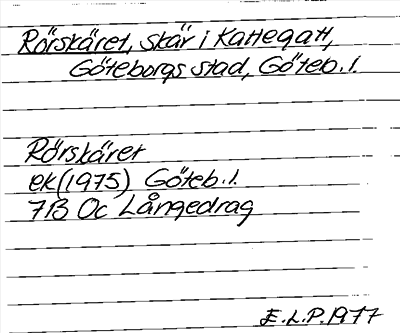 Rörskäret, skär i Kattegatt,
Göteborgs stad, Göteb. l.
Rörskäret
ek (1975) Göteb. l.
7B Oc Långedrag
E.L.P. 1977